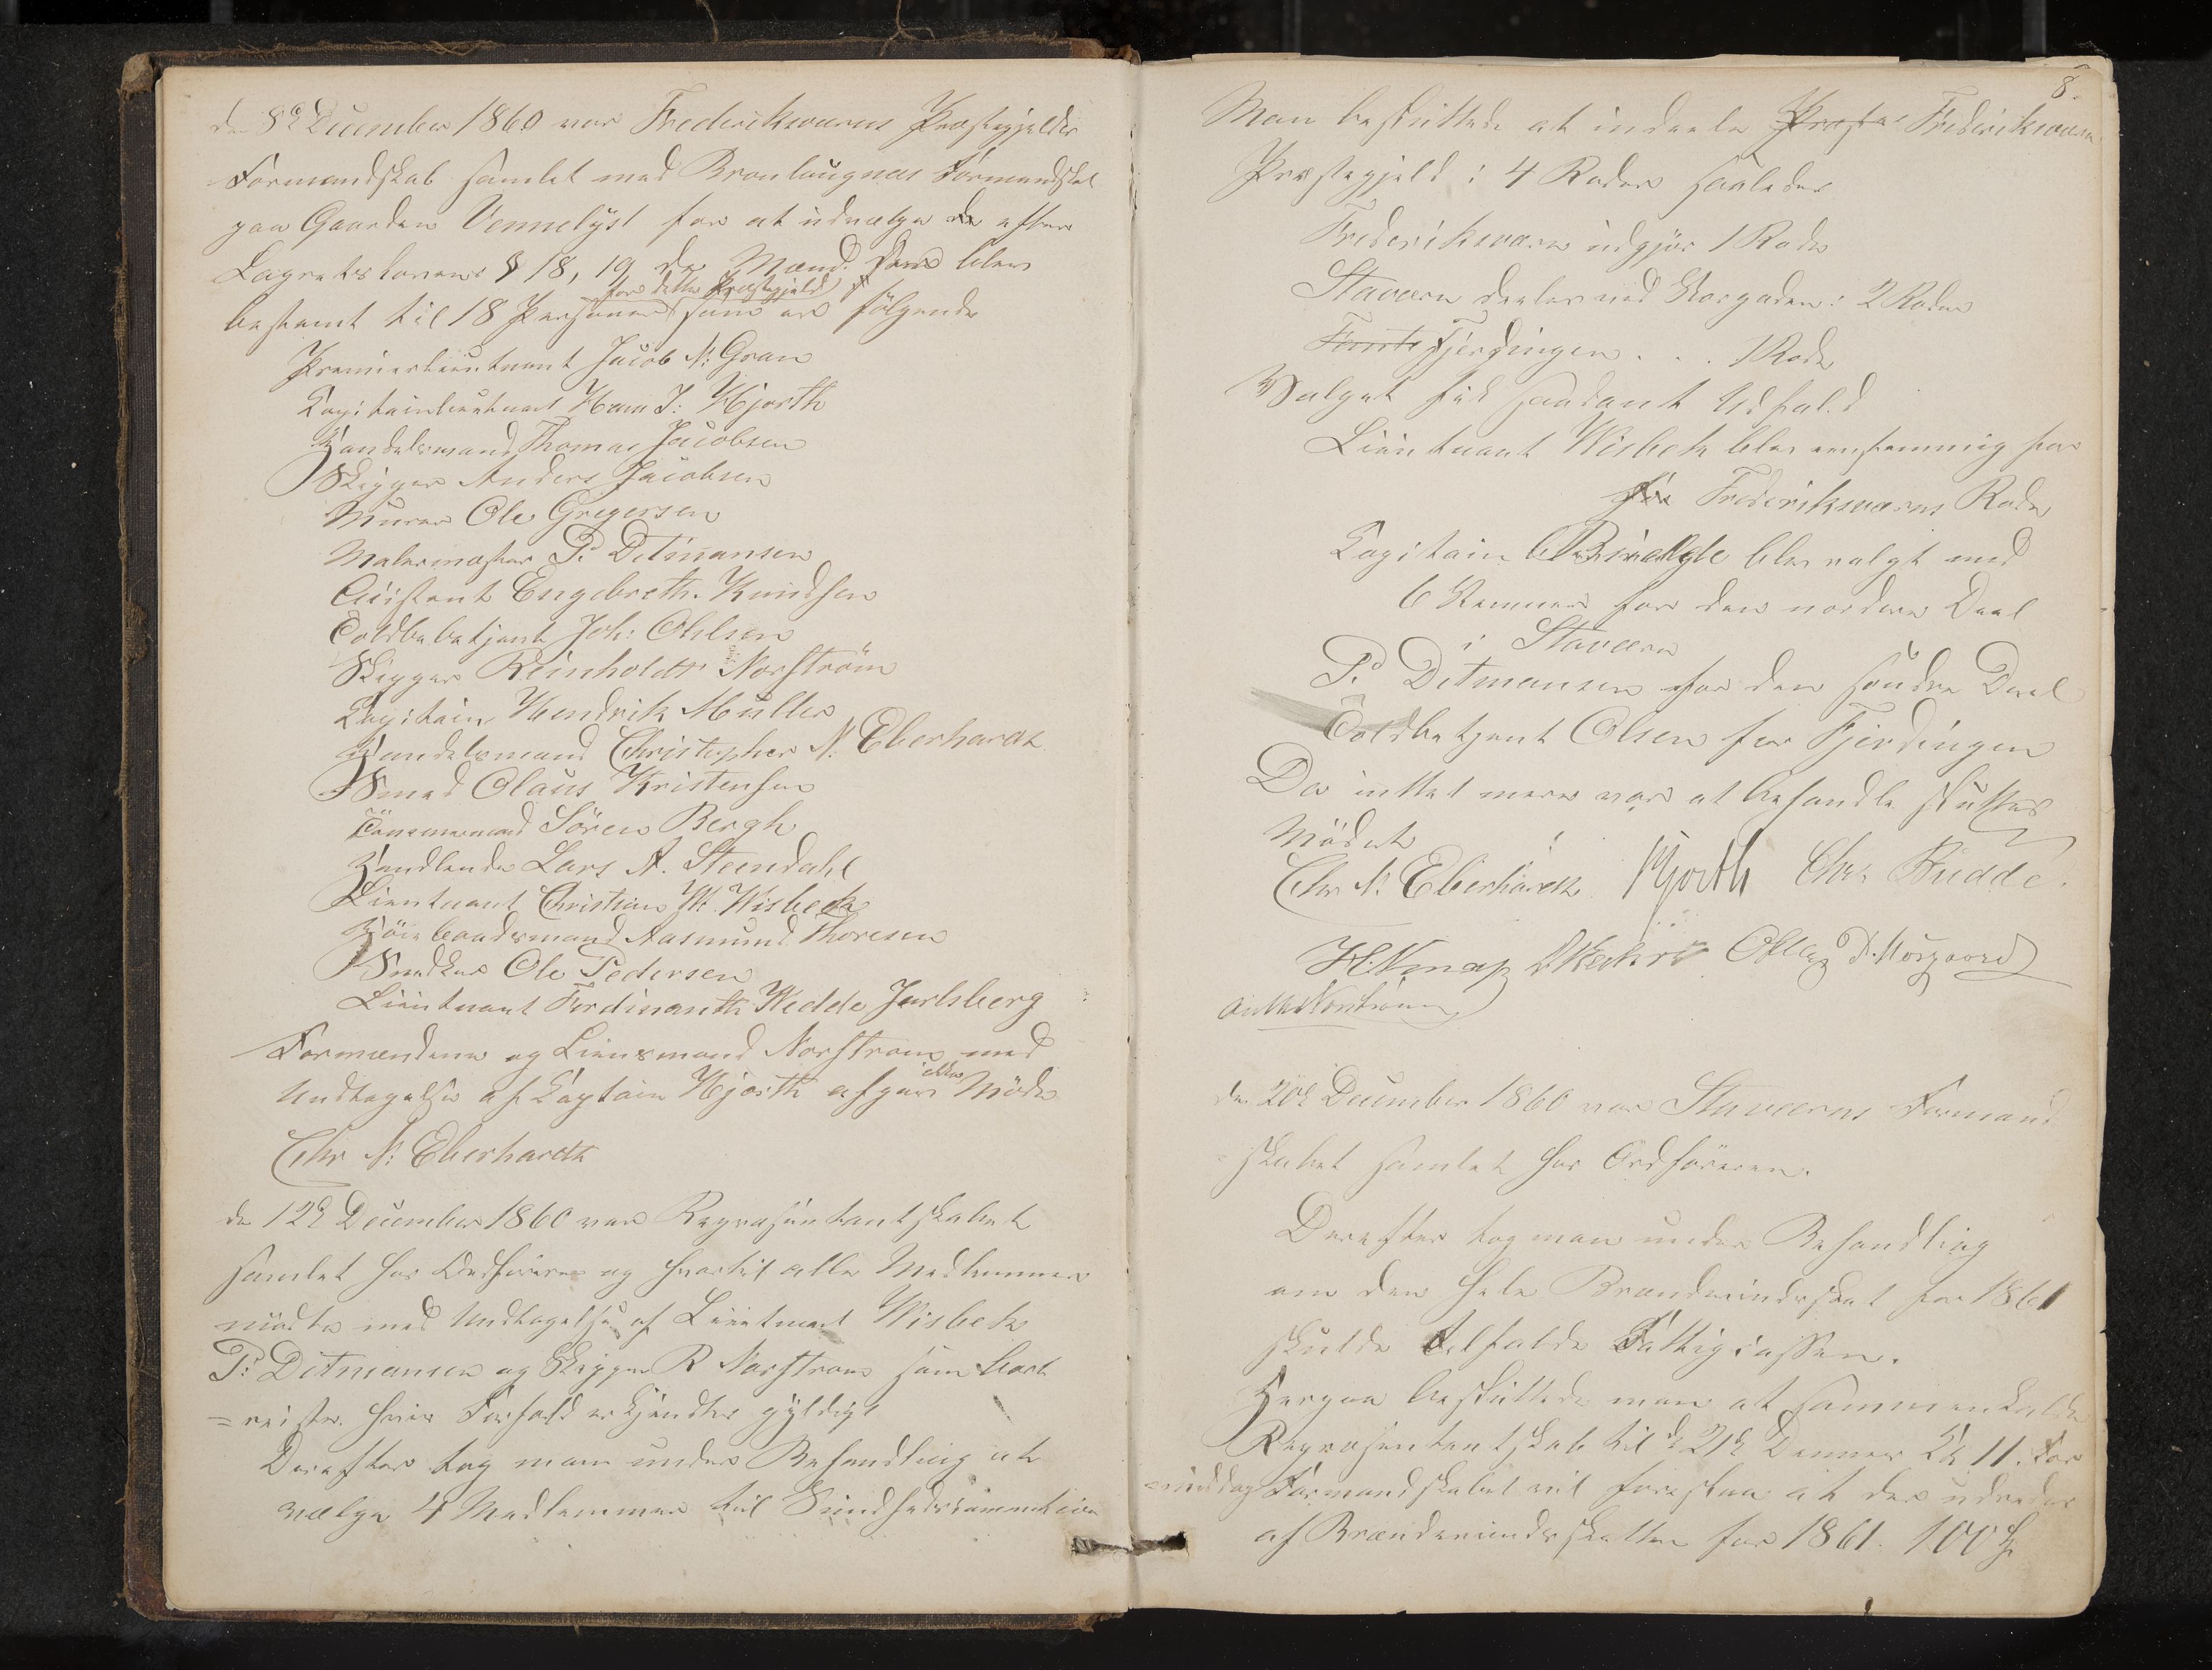 den 8de December 1860 var Frederiksværns Præstegjelds
Formandskab samlet med Brunlaugnæs Formandskab
paa Gaarden Vennelyst for at udvælge de efter
Lagretsloven § 18, 19 de Mænd. Som blev
for dette Præstegjeld
bestemt til 18 Personer som ere følgende
Premierlieutnant Jacob N: Gran
Capitainlieutnant Hans J: Hjorth
Handelsmand Thomas Jacobsen
Skipper Anders Jacobsen
Murer Ole Gregersen
Malermester P. Ditmansen
Assistent Engebreth. Knudsen
Toldbebetjent Joh: Ohlsen
Skipper Reinholdt Norstrøm
Capitain Hendrik Müller
Handelsmand Christopher N. Eberhardt
Smed Olaus Kristensen
Tømmermand Sören Bergh
Handlende Lars A. Steendahl
Lieutnant Christian W. Wisbech
Höiebaadsmand Aasmund Thoresen
Snedker Ole Pedersen
Lieutnant Ferdinanth Wedde Jarlsberg
Formændene og Liensmand Norstrøm med
ikke
Undtagelse af Captain Hjorth afgav Møde
Chr N: Eberhardt
den 12te December 1860 var Repræsentantskabet
samlet hos Ordføreren og hvortil alle Medlemmer
mödte med Undtagelse af Lieutnant Wisbech
P: Ditmansen og Skipper R Norstrøm som bort
=reiste. hvis Forfald erkjendtes gyldigt
Derefter tog man under Behandling at
vælge 4 Medlemmer til Sundhedscommision
8.
Man besluttede at inddele Præste Frederiksværn
Præstegjeld i 4 Roder saaledes
Frederiksværn udgjör 1 Rode
Staværn deeles ved Storgaden i 2 Roder
Fjerdingen . . . 1 Rode
Valget fik saadant Udfald
Lieutnant Wisbech blev eenstemmig for
for Frederiksværns Rode
Capitain Budde blev valgt med
6 Stemmer for den nordere Deel
i Staværn
P. Ditmansen for den søndre Deel
Toldbetjent Olsen for Fjerdingen
Da inttet mere var at behandle sluttes
Mödet
Chr N. Eberhardt Hjorth Chr. Budde.
H. Knap
den 20de December 1860 var Staværns Formand
=skabet samlet hos Ordföreren.
Derefter tog man under Behandling
om den hele Brændeviinsskat for 1861
skulde tilfalde Fattigcassen.
Herpaa besluttede man at sammenkalde
Repræsentantskab til d 21de Dennes Kl 11. For
=middag Formandskabet vil foreslaa at der udredes
af Brændeviinsskatten for 1861. 100